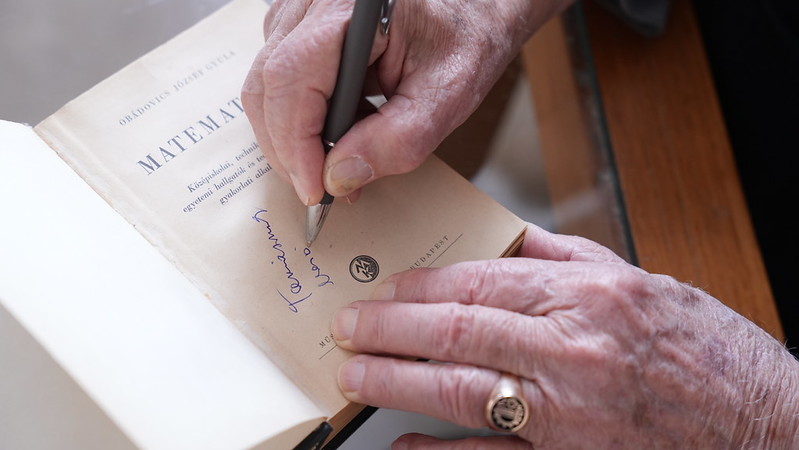 OBÁDOVICS JÓZSEF GYULA
MATEMAT
Középiskolai, technik
egyetemi hallgatók és te
gyakorlati alkal
BUDAPEST
MŰ